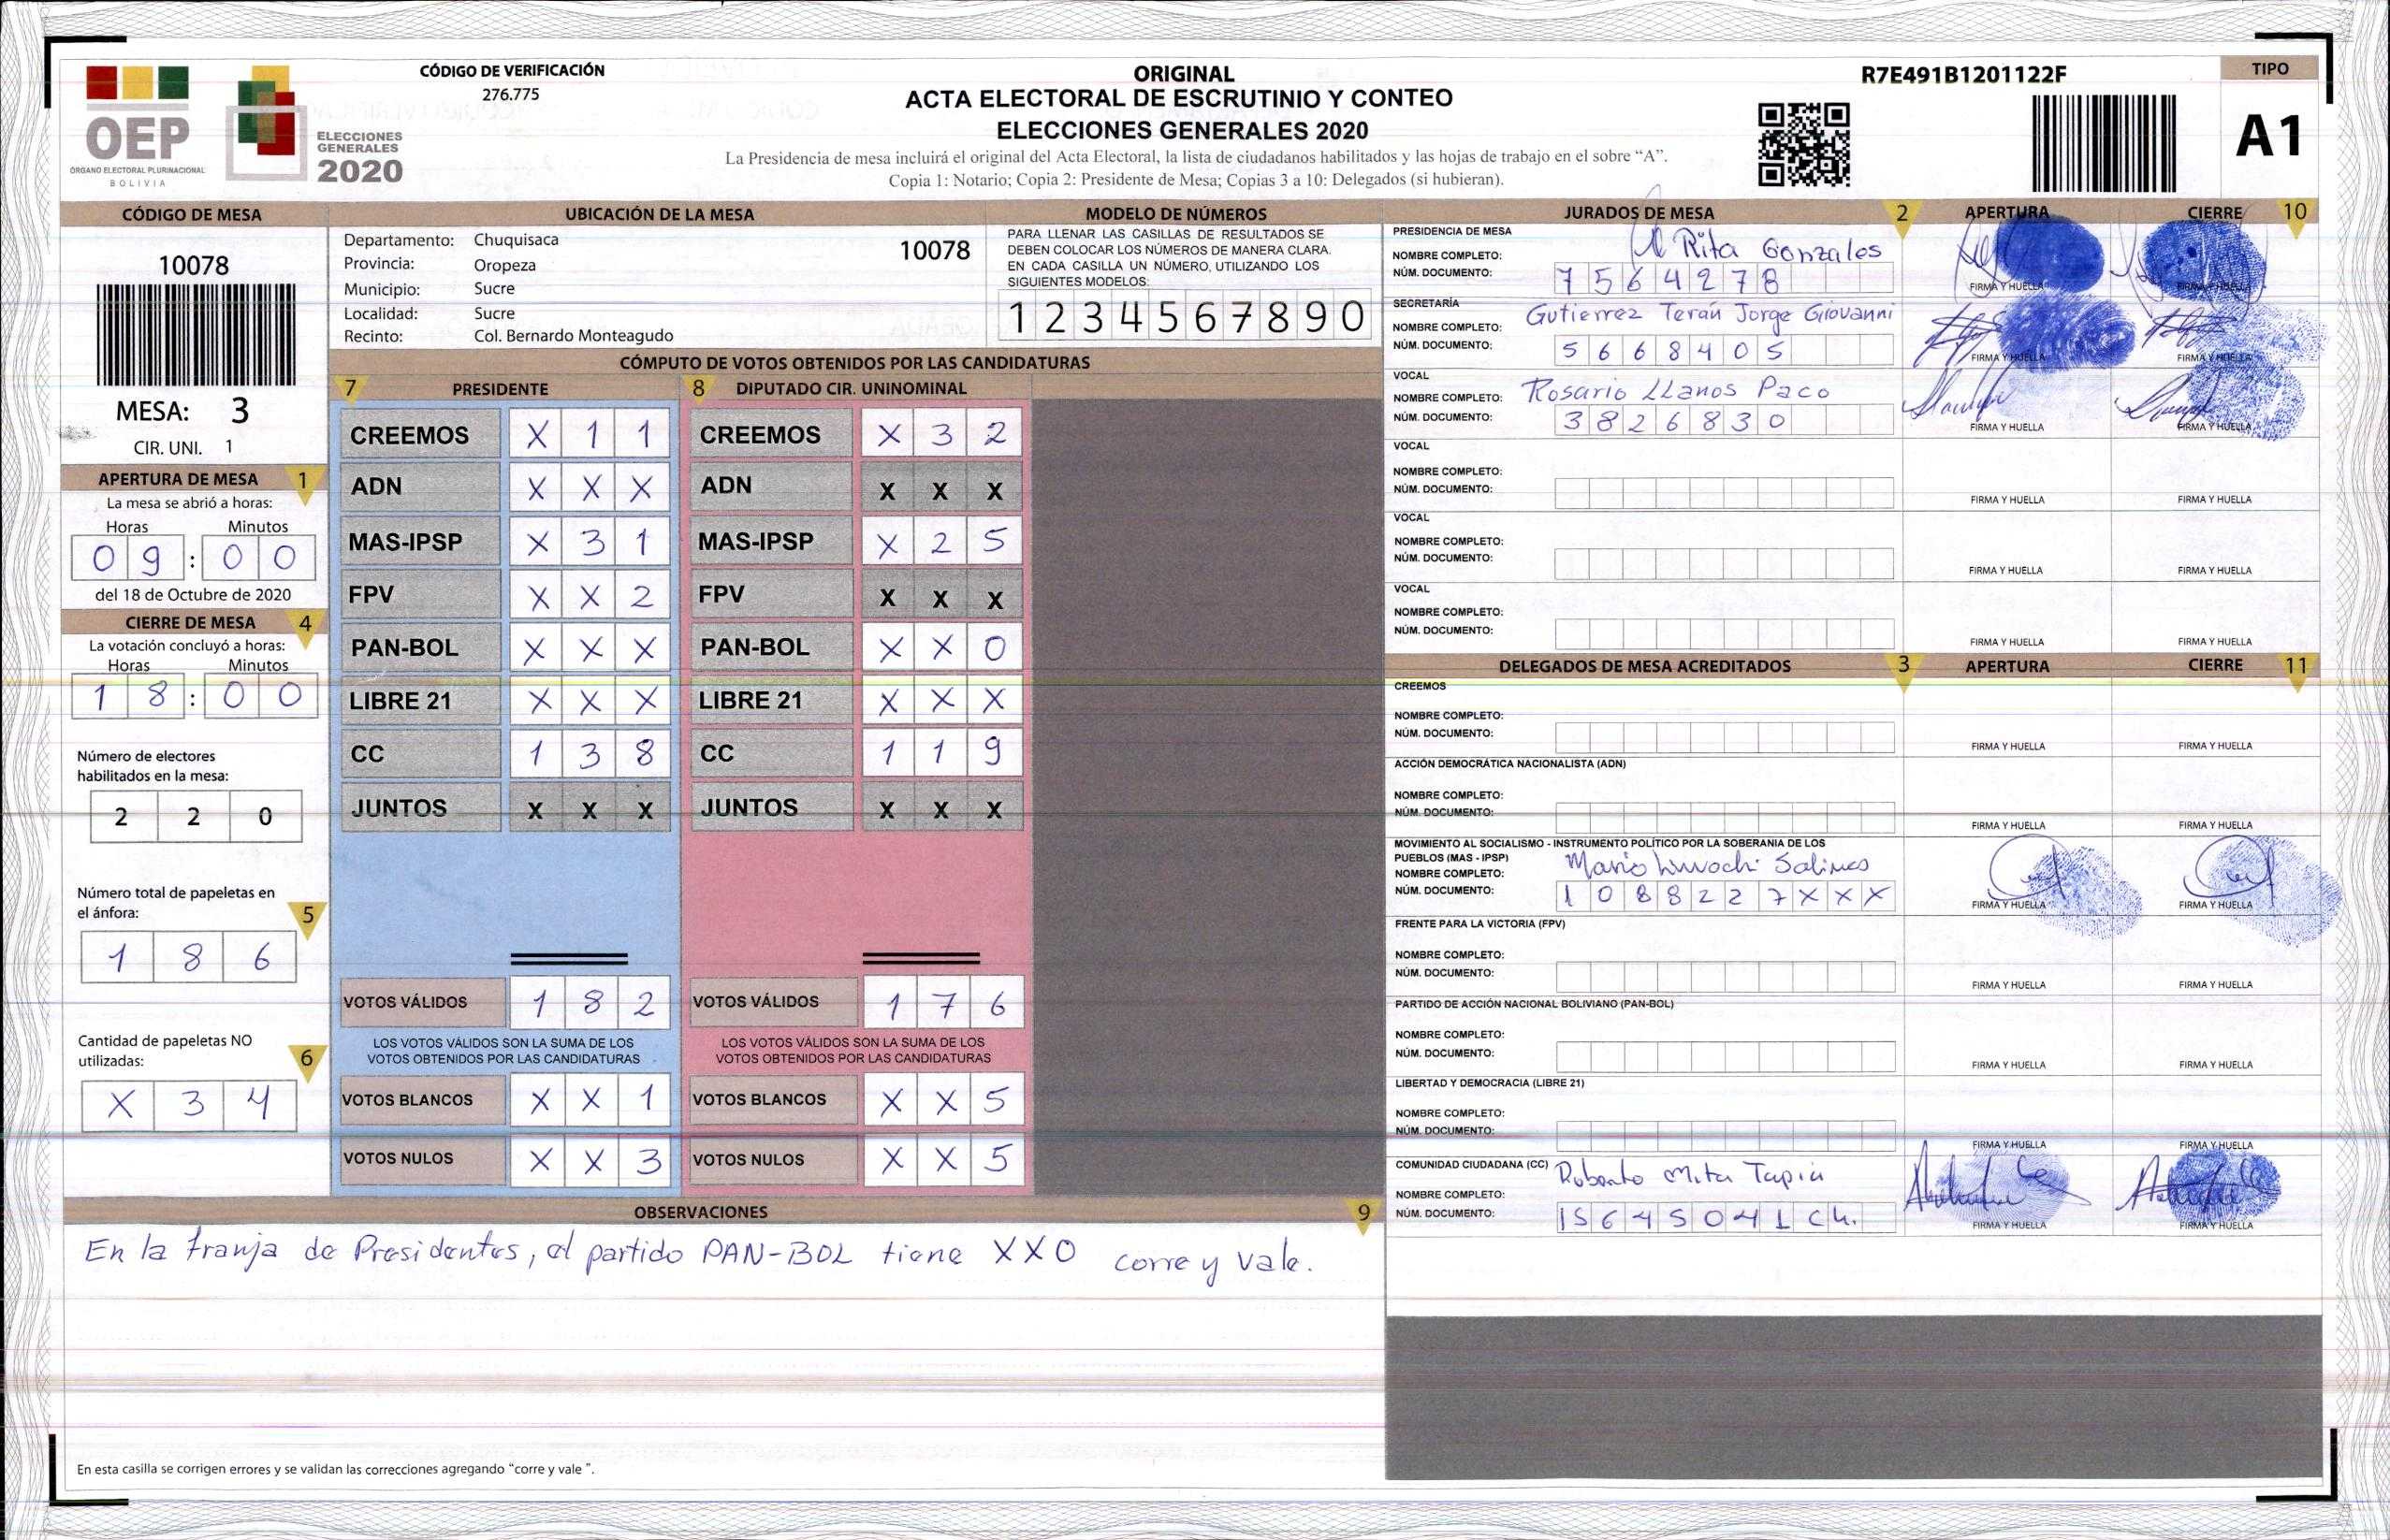 OEP
ÓRGANO ELECTORAL PLURINACIONAL
BOLIVIA
ELECCIONES
GENERALES
2020
CÓDIGO DE VERIFICACIÓN
276.775
ORIGINAL
ACTA ELECTORAL DE ESCRUTINIO Y CONTEO
ELECCIONES GENERALES 2020
La Presidencia de mesa incluirá el original del Acta Electoral, la lista de ciudadanos habilitados y las hojas de trabajo en el sobre “A”.
Copia 1: Notario; Copia 2: Presidente de Mesa; Copias 3 a 10: Delegados (si hubieran).
R7E491B1201122F
TIPO
A1
CÓDIGO DE MESA
10078
MESA: 3
CIR. UNI. 1
APERTURA DE MESA 1
La mesa se abrió a horas:
Horas Minutos
0 9 : 0 0
del 18 de Octubre de 2020
CIERRE DE MESA 4
La votación concluyó a horas:
Horas Minutos
1 8 : 0 0
Número de electores
habilitados en la mesa:
2 2 0
Número total de papeletas en
el ánfora: 5
1 8 6
Cantidad de papeletas NO
utilizadas: 6
X 3 4
UBICACIÓN DE LA MESA
Departamento: Chuquisaca
10078
Provincia: Oropeza
Municipio: Sucre
Localidad: Sucre
Recinto: Col. Bernardo Monteagudo
MODELO DE NÚMEROS
PARA LLENAR LAS CASILLAS DE RESULTADOS SE
DEBEN COLOCAR LOS NÚMEROS DE MANERA CLARA.
EN CADA CASILLA UN NÚMERO, UTILIZANDO LOS
SIGUIENTES MODELOS:
1 2 3 4 5 6 7 8 9 0
CÓMPUTO DE VOTOS OBTENIDOS POR LAS CANDIDATURAS
7 PRESIDENTE
CREEMOS X 1 1
ADN X X X
MAS-IPSP X 3 1
FPV X X 2
PAN-BOL X X X
LIBRE 21 X X X
CC 1 3 8
JUNTOS X X X
VOTOS VÁLIDOS 1 8 2
LOS VOTOS VÁLIDOS SON LA SUMA DE LOS
VOTOS OBTENIDOS POR LAS CANDIDATURAS
VOTOS BLANCOS X X 1
VOTOS NULOS X X 3
8 DIPUTADO CIR. UNINOMINAL
CREEMOS X 3 2
ADN X X X
MAS-IPSP X 2 5
FPV X X X
PAN-BOL X X 0
LIBRE 21 X X X
CC 1 1 9
JUNTOS X X X
VOTOS VÁLIDOS 1 7 6
LOS VOTOS VÁLIDOS SON LA SUMA DE LOS
VOTOS OBTENIDOS POR LAS CANDIDATURAS
VOTOS BLANCOS X X 5
VOTOS NULOS X X 5
OBSERVACIONES 9
En la franja de Presidentes, el partido PAN-BOL tiene XX0 corre y vale.
En esta casilla se corrigen errores y se validan las correcciones agregando “corre y vale ”.
JURADOS DE MESA 2 APERTURA CIERRE 10
PRESIDENCIA DE MESA
NOMBRE COMPLETO: Rita Gonzales
NÚM. DOCUMENTO: 7 5 6 4 2 7 8
FIRMA Y HUELLA FIRMA Y HUELLA
SECRETARÍA
NOMBRE COMPLETO: Gutierrez Terán Jorge Giovanni
NÚM. DOCUMENTO: 5 6 6 8 4 0 5
FIRMA Y HUELLA FIRMA Y HUELLA
VOCAL
NOMBRE COMPLETO: Rosario LLanos Paco
NÚM. DOCUMENTO: 3 8 2 6 8 3 0
FIRMA Y HUELLA FIRMA Y HUELLA
VOCAL
NOMBRE COMPLETO:
NÚM. DOCUMENTO:
FIRMA Y HUELLA FIRMA Y HUELLA
VOCAL
NOMBRE COMPLETO:
NÚM. DOCUMENTO:
FIRMA Y HUELLA FIRMA Y HUELLA
VOCAL
NOMBRE COMPLETO:
NÚM. DOCUMENTO:
FIRMA Y HUELLA FIRMA Y HUELLA
DELEGADOS DE MESA ACREDITADOS 3 APERTURA CIERRE 11
CREEMOS
NOMBRE COMPLETO:
NÚM. DOCUMENTO:
FIRMA Y HUELLA FIRMA Y HUELLA
ACCIÓN DEMOCRÁTICA NACIONALISTA (ADN)
NOMBRE COMPLETO:
NÚM. DOCUMENTO:
FIRMA Y HUELLA FIRMA Y HUELLA
MOVIMIENTO AL SOCIALISMO - INSTRUMENTO POLÍTICO POR LA SOBERANIA DE LOS
PUEBLOS (MAS - IPSP)
NOMBRE COMPLETO: Mario Salinas
NÚM. DOCUMENTO: 1 0 8 8 2 2 7 X X X
FIRMA Y HUELLA FIRMA Y HUELLA
FRENTE PARA LA VICTORIA (FPV)
NOMBRE COMPLETO:
NÚM. DOCUMENTO:
FIRMA Y HUELLA FIRMA Y HUELLA
PARTIDO DE ACCIÓN NACIONAL BOLIVIANO (PAN-BOL)
NOMBRE COMPLETO:
NÚM. DOCUMENTO:
FIRMA Y HUELLA FIRMA Y HUELLA
LIBERTAD Y DEMOCRACIA (LIBRE 21)
NOMBRE COMPLETO:
NÚM. DOCUMENTO:
FIRMA Y HUELLA FIRMA Y HUELLA
COMUNIDAD CIUDADANA (CC) Roberto Mita Tapia
NOMBRE COMPLETO:
NÚM. DOCUMENTO: 1 5 6 4 5 0 4 1 Ch.
FIRMA Y HUELLA FIRMA Y HUELLA